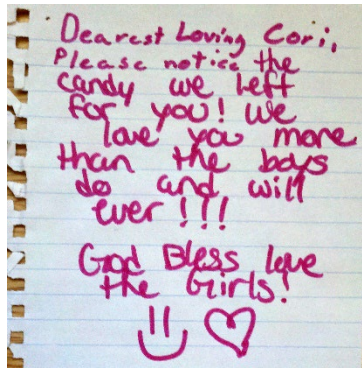 Dearest Loving Cori,
Please notice the
candy we left
for you! We
love you more
than the boys
do and will
ever!!!
God Bless love
the Girls!